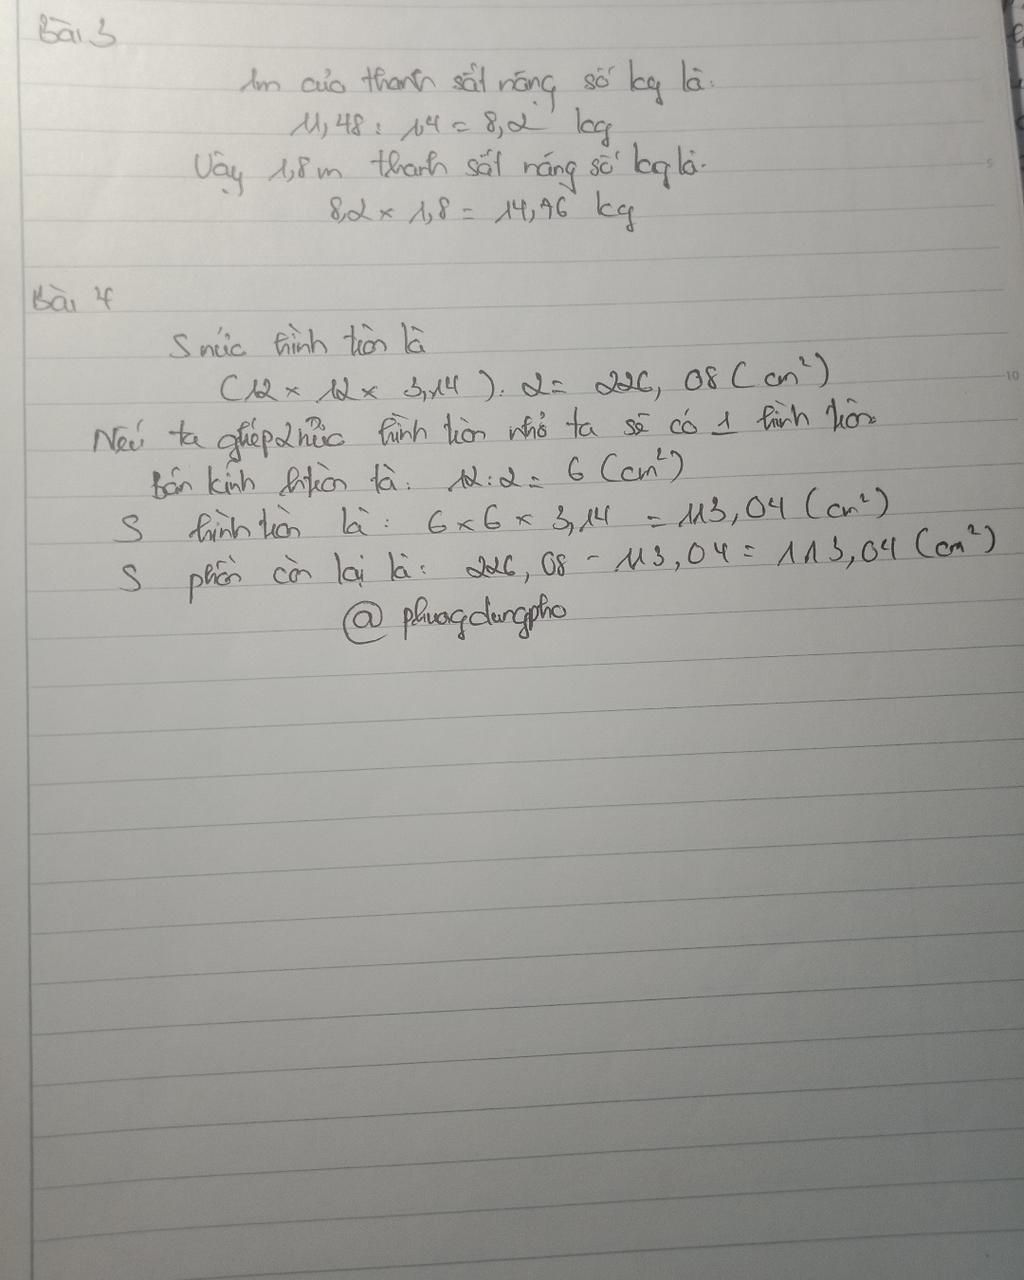 Bài 3
1m của thanh sắt nặng số kg là:
11,48 : 1,4 = 8,2 kg
Vậy 1,8m thanh sắt nặng số kg là.
8,2 × 1,8 = 14,76 kg
Bài 4
S nửa hình tròn là
(12 × 12 × 3,14) : 2 = 226,08 (cm²)
Nếu ta ghép 2 nửa hình tròn nhỏ ta sẽ có 1 hình tròn
Bán kính htròn là: 12:2 = 6 (cm²)
S hình tròn là: 6 × 6 × 3,14 = 113,04 (cm²)
S phần còn lại là: 226,08 - 113,04 = 113,04 (cm²)
@phuogdungpho
10